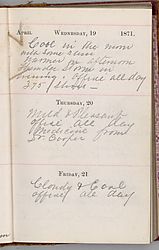 April Wednesday, 19 1871.
Cool in the morn
with some rain
warmer in afternoon
Thunder Storm in
evening. Office all day
375/
Thursday, 20
Mild & Pleasant
office all day
Medicine from
Dr Cooper
Friday, 21
Cloudy & Cool
office all day